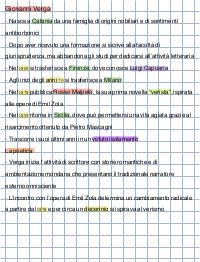 Giovanni Verga
- Nasce a Catania da una famiglia di origini nobiliari e di sentimenti
antiborbonici
- Dopo aver ricevuto una formazione si iscrive alla facoltà di
giurisprudenza, ma abbandona gli studi per dedicarsi all'attività letteraria
- Nel si trasferisce a Firenze, dove conosce Luigi Capuana
- Agli inizi degli anni si trasferisce a Milano
- Nel pubblica Rosso Malpelo, la sua prima novella "verista", ispirata
alle opere di Emil Zola
- Nel ritorna in Sicilia, dove può permettersi una vita agiata grazie al
risarcimento ottenuto da Pietro Mascagni
- Trascorre i suoi ultimi anni in un voluto isolamento
La poetica
- Verga inizia l'attività di scrittore con storie romantiche e di
ambientazione mondana che presentano il tradizionale narratore
esterno onnisciente
- L'incontro con l'opera di Emil Zola determina un cambiamento radicale
a partire dal e per circa un decennio si ispira al verismo